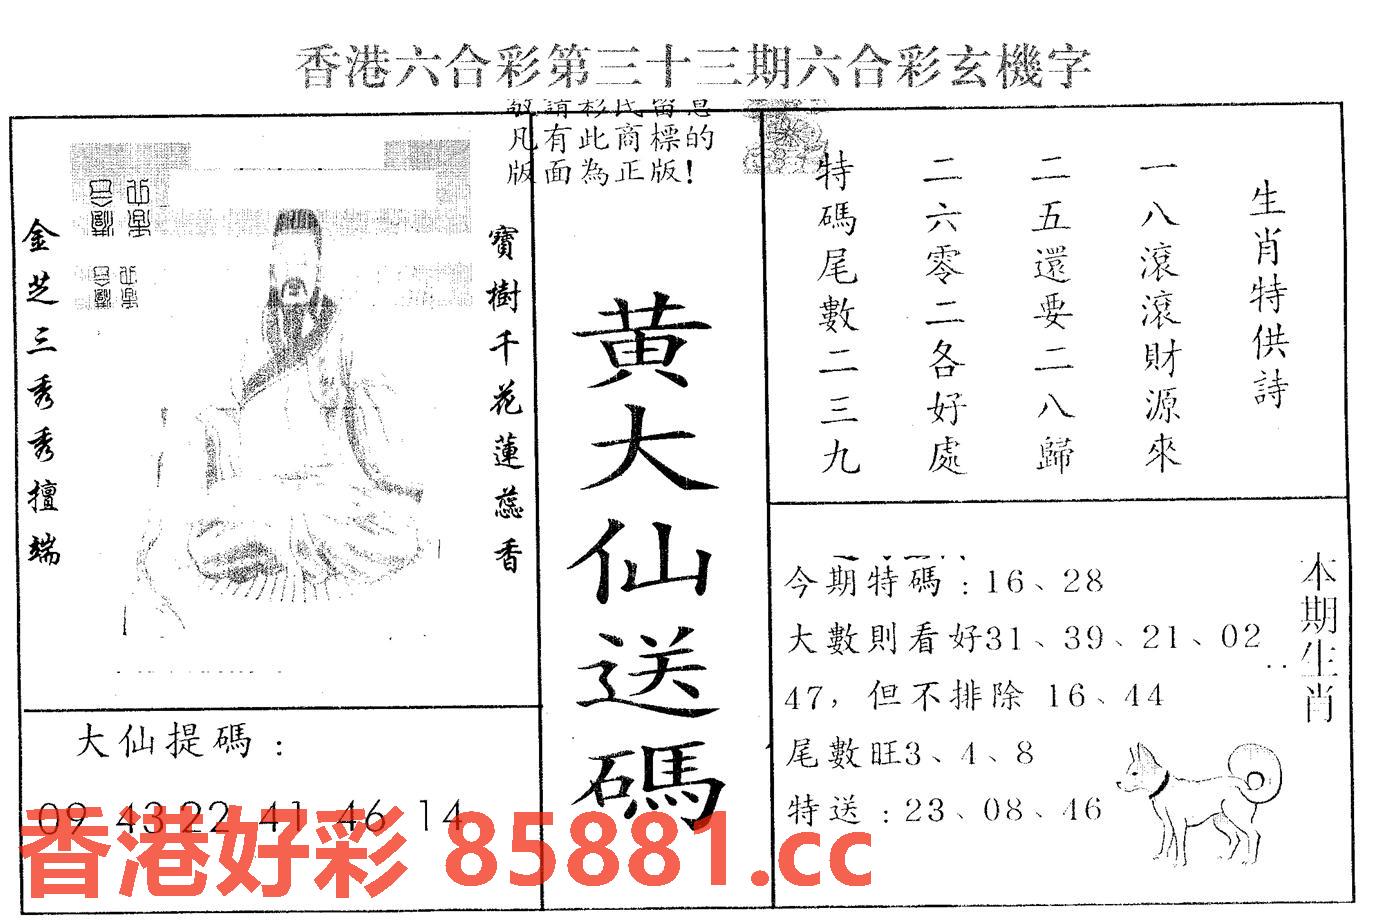 香港六合彩第三十三期六合彩玄機字
凡有此商標的
版面為正版!
金芝三秀秀擅端
寶樹千花蓮蕊香
黃大仙送碼
生肖特供詩
一八滾滾財源來
二五還要二八歸
二六零二各好處
特碼尾數二三九
大仙提碼:
09 43 22 41 46 14
本期生肖
今期特碼:16、28
大數則看好31、39、21、02
47，但不排除 16、44
尾數旺3、4、8
特送:23、08、46
香港好彩 85881.cc